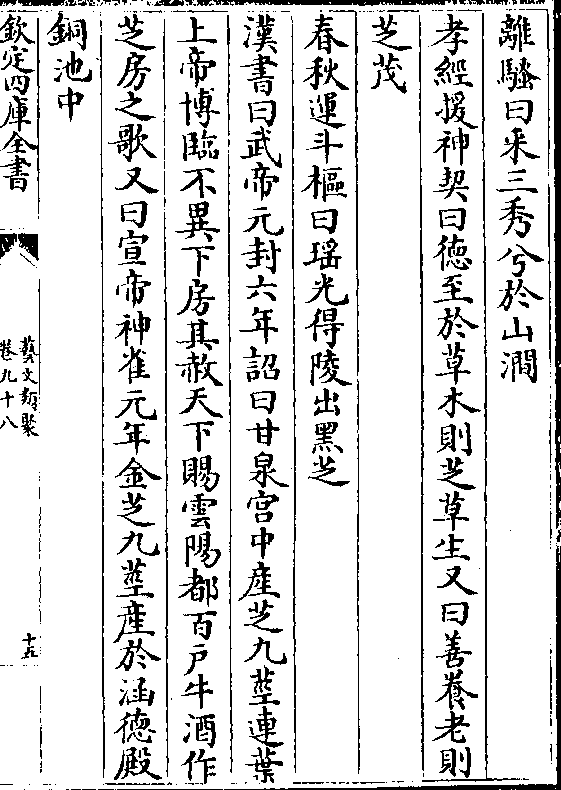 離騷曰采三秀兮於山澗
孝經援神契曰徳至於草木則芝草生又曰善養老則
芝茂
春秋運斗樞曰瑶光得陵出黒芝
漢書曰武帝元封六年詔曰甘泉宫中産芝九莖連葉
上帝博臨不異下房其赦天下賜雲陽都百戸牛酒作
芝房之歌又曰宣帝神雀元年金芝九莖産於涵徳殿
銅池中
欽定四庫全書
藝文類聚
卷九十八
十五